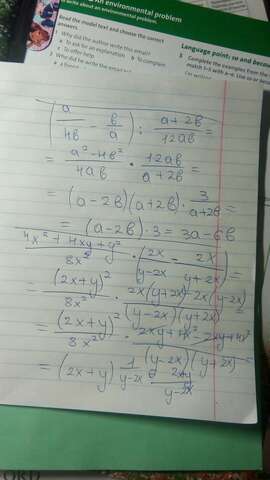 an environmental problem
write about an environmental problem
Read the model text and choose the correct
answers.
1 Why did the author write this email?
a To ask for an explanation b To complain
c To offer help
2 Why did he write the email
Language point: so and because
5 Complete the examples from the
match 1–5 with a–e. Use so or be
(a/4в - в/a) : (a+2в)/12aв =
= (a²-4в²)/4aв · 12aв/(a+2в) =
= (a-2в)(a+2в) · 3/(a+2в) =
= (a-2в)·3 = 3a-6в
(4x²+4xy+y²)/8x² · (2x/(y-2x) - 2x/(y+2x)) =
= (2x+y)²/8x² · (2x(y+2x)-2x(y-2x))/((y-2x)(y+2x)) =
= (2x+y)²/8x² · (2xy+4x²-2xy+4x²)/((y-2x)(y+2x)) =
= (2x+y) 1/(y-2x)